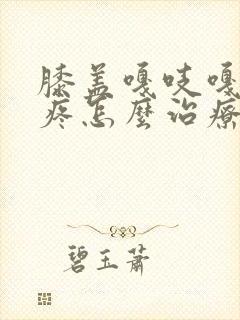 膝盖嘎吱嘎
疼怎麼治療
碧玉蕭